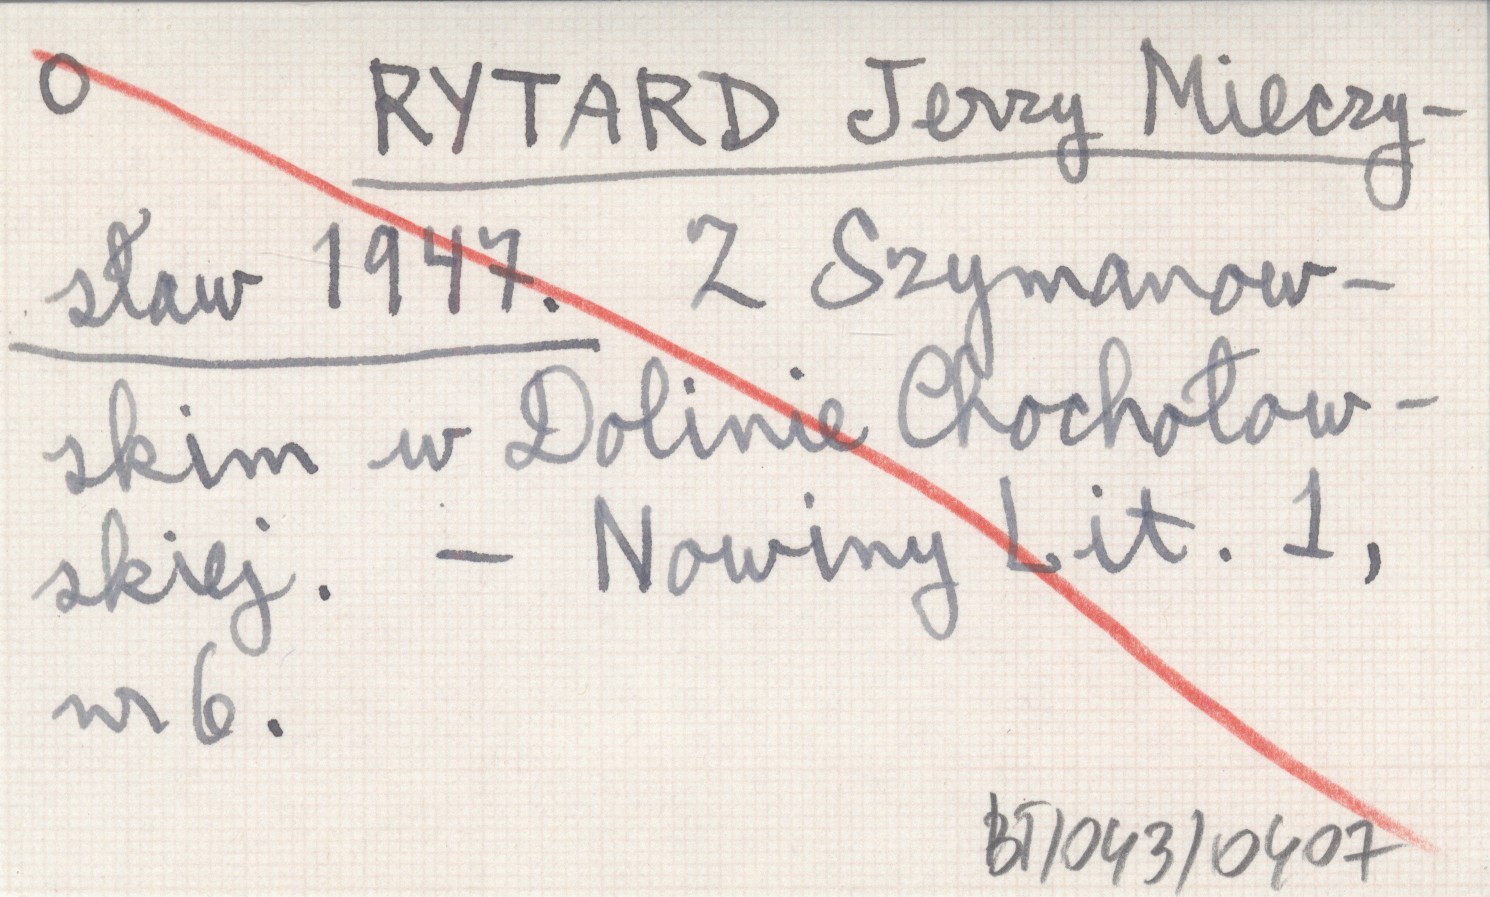 O RYTARD Jerzy Mieczy-
sław 1947. Z Szymanow-
skim w Dolinie Chochołow-
skiej. — Nowiny Lit. 1,
nr 6.
BT/043/0407